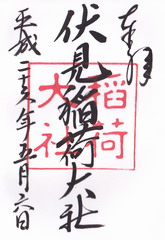 奉拝
伏見稲荷大社
稲荷
大社
平成二十六年五月六日